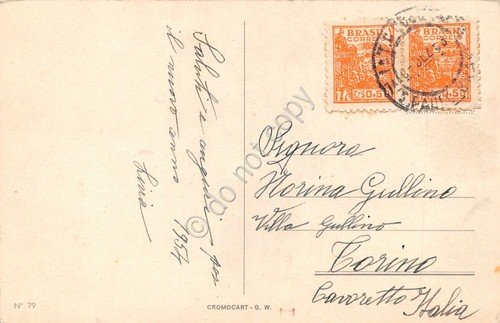 Saluti e auguri per
il nuovo anno 1954
Livia
BRASIL
CORREIO
Cr$0,50
BRASIL
CORREIO
S. PAULO
Signora
Norina Gullino
Villa Gullino
Torino
Cavoretto Italia
Nº 79
CROMOCART - G. W.
© do not copy